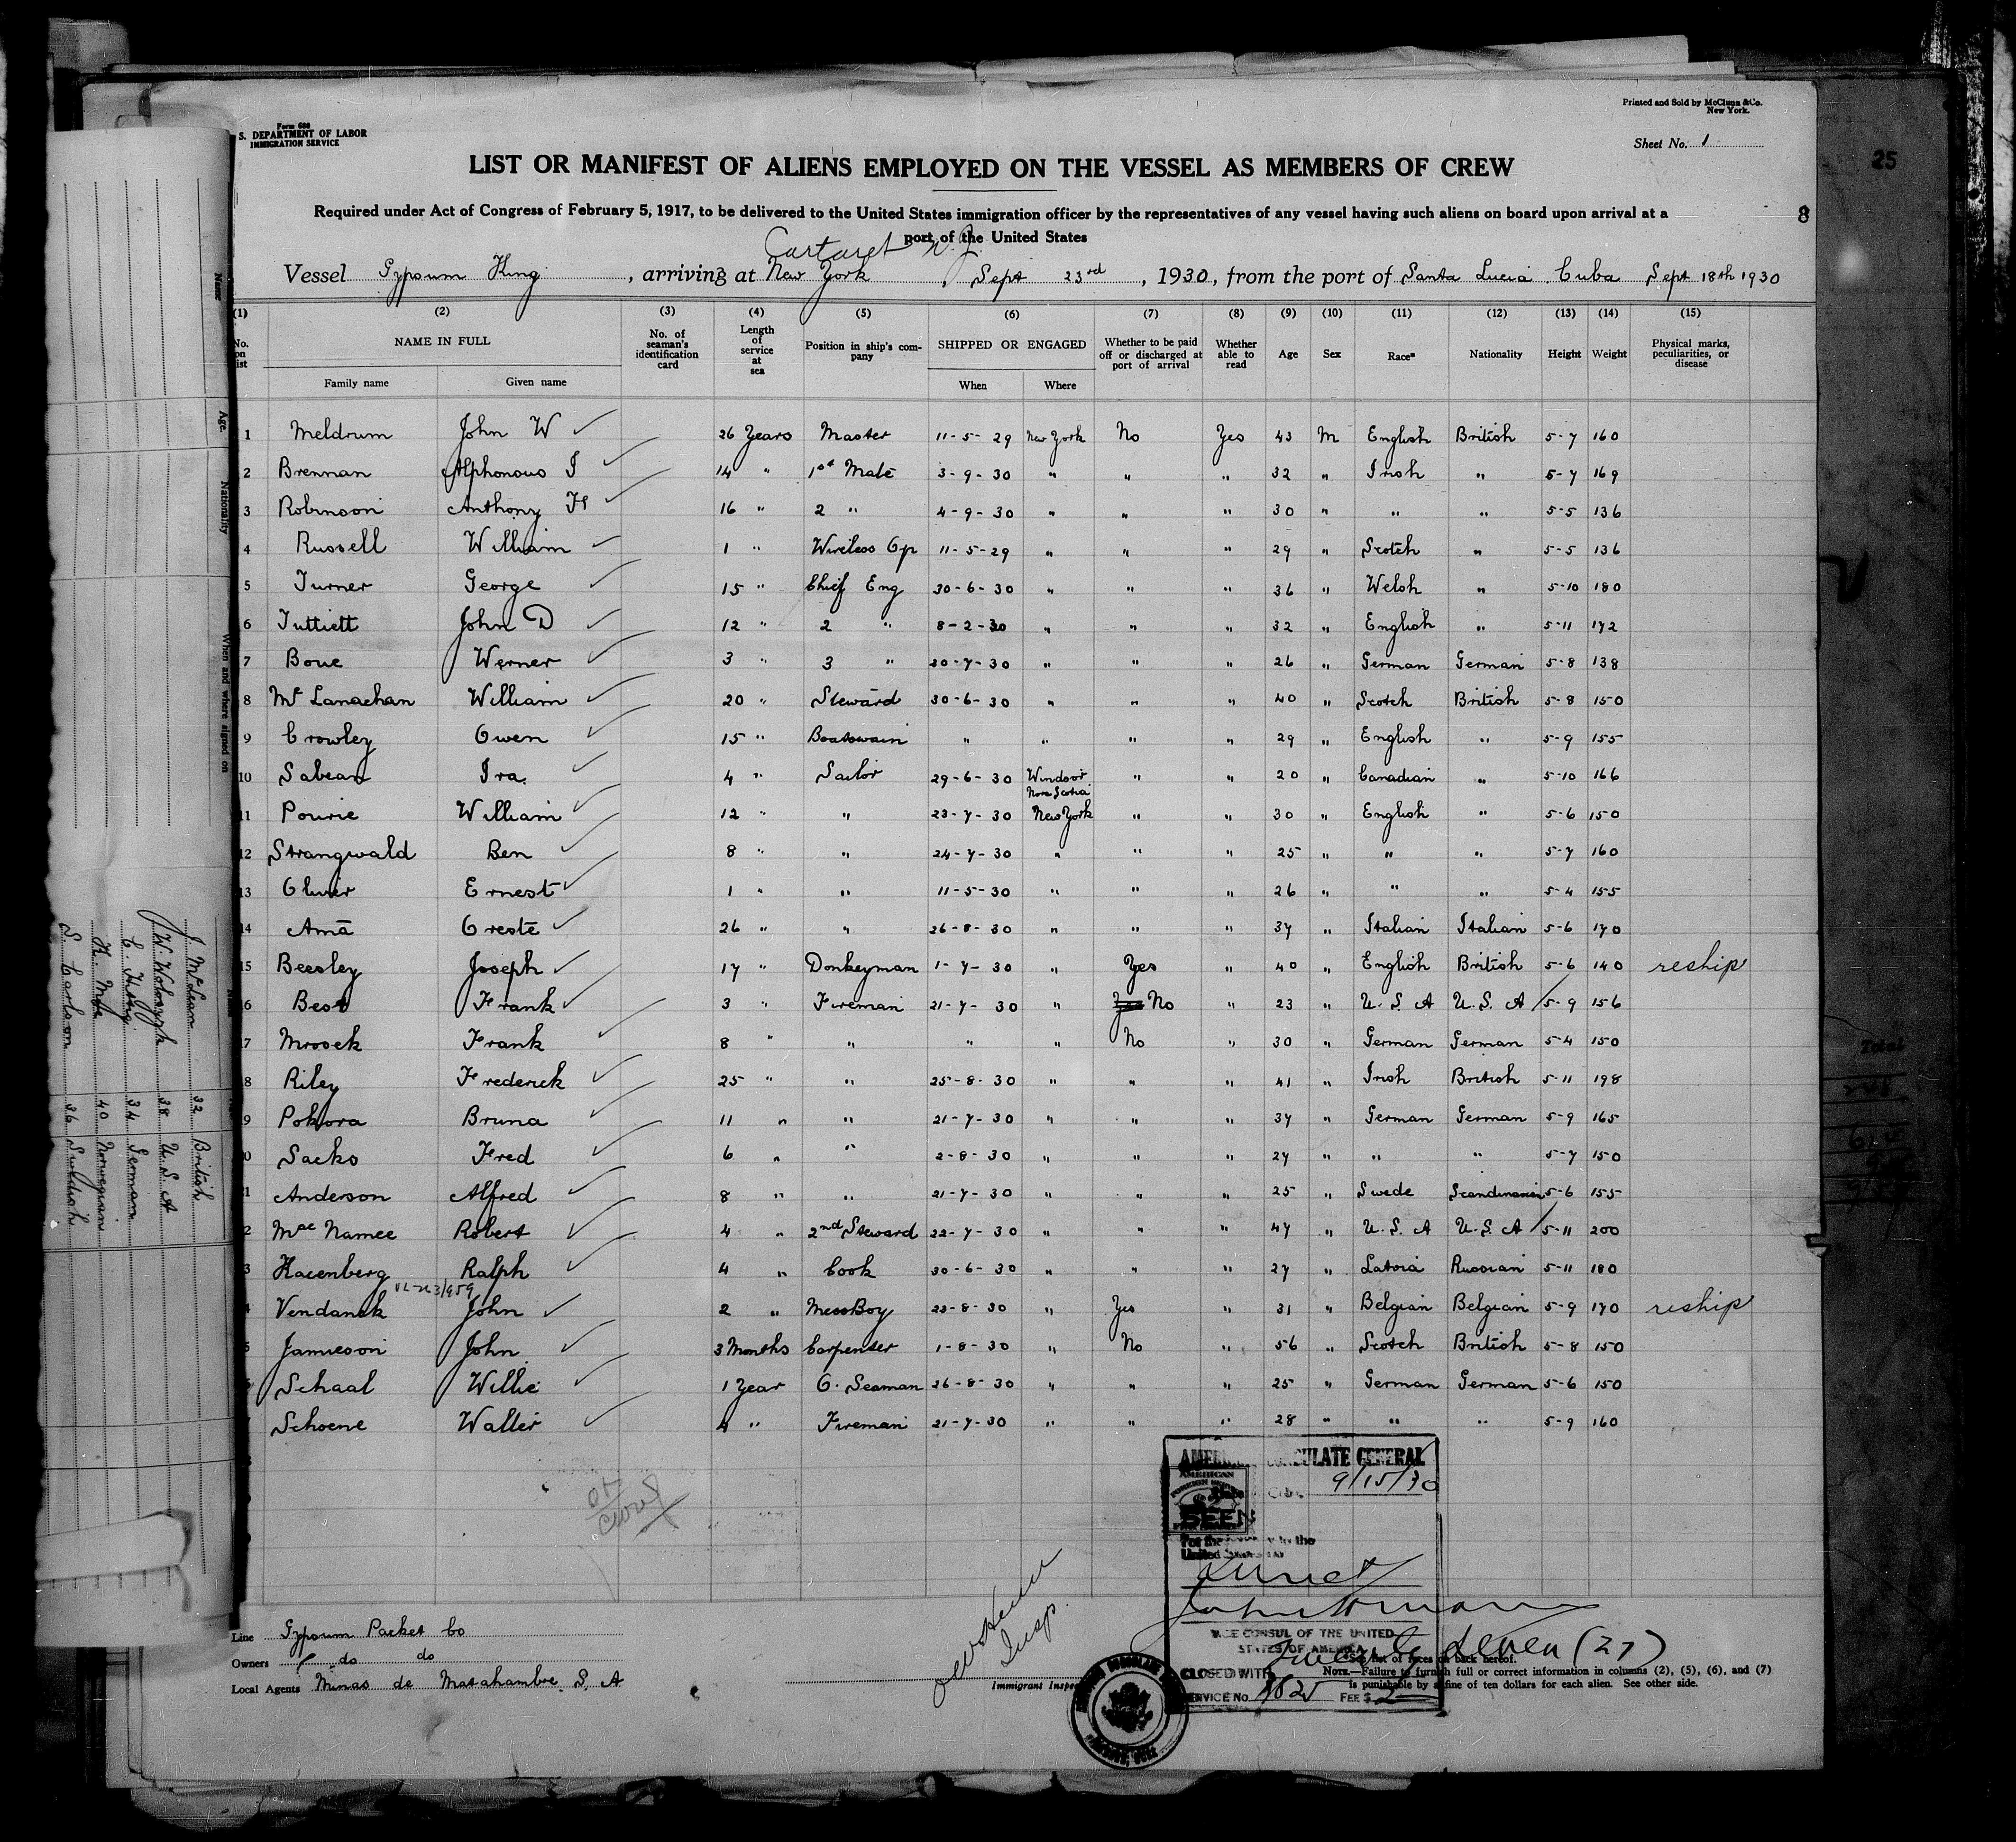 Printed and Sold by McClunn & Co.
New York.
Form 688
S. DEPARTMENT OF LABOR
IMMIGRATION SERVICE
Sheet No. 1
25
LIST OR MANIFEST OF ALIENS EMPLOYED ON THE VESSEL AS MEMBERS OF CREW
Required under Act of Congress of February 5, 1917, to be delivered to the United States immigration officer by the representatives of any vessel having such aliens on board upon arrival at a
port of the United States
8
Cartaret N.J.
Vessel Gypsum King, arriving at New York, Sept 23rd, 1930, from the port of Santa Lucia Cuba Sept 18th 1930
(1) (2) (3) (4) (5) (6) (7) (8) (9) (10) (11) (12) (13) (14) (15)
No. on list NAME IN FULL Family name Given name No. of seaman's identification card Length of service at sea Position in ship's company SHIPPED OR ENGAGED When Where Whether to be paid off or discharged at port of arrival Whether able to read Age Sex Race* Nationality Height Weight Physical marks, peculiarities, or disease
1 Meldrum John W 26 Years Master 11-5-29 New York No Yes 43 M English British 5-7 160
2 Brennan Alphonous J 14 " 1st Mate 3-9-30 " " " 32 " Irish " 5-7 169
3 Robinson Anthony H 16 " 2 " 4-9-30 " " " 30 " " " 5-5 136
4 Russell William 1 " Wireless Op 11-5-29 " " " 29 " Scotch " 5-5 136
5 Turner George 15 " Chief Eng 30-6-30 " " " 36 " Welsh " 5-10 180
6 Tuttiett John D 12 " 2 " 8-2-30 " " " 32 " English " 5-11 172
7 Boue Werner 3 " 3 " 30-7-30 " " " 26 " German German 5-8 138
8 Mc Lanachan William 20 " Steward 30-6-30 " " " 40 " Scotch British 5-8 150
9 Crowley Owen 15 " Boatswain " " " " 29 " English " 5-9 155
10 Sabean Ira 4 " Sailor 29-6-30 Windsor Nova Scotia " " 20 " Canadian " 5-10 166
11 Pourie William 12 " " 23-7-30 New York " " 30 " English " 5-6 150
12 Strangwald Ben 8 " " 24-7-30 " " " 25 " " " 5-7 160
13 Oliver Ernest 1 " " 11-5-30 " " " 26 " " " 5-4 155
14 Amā Oreste 26 " " 26-8-30 " " " 37 " Italian Italian 5-6 170
15 Beesley Joseph 17 " Donkeyman 1-7-30 " Yes " 40 " English British 5-6 140 reship
16 Best Frank 3 " Fireman 21-7-30 " Yes No " 23 " U.S.A U.S.A 5-9 156
17 Mrosek Frank 8 " " " " No " 30 " German German 5-4 150
18 Riley Frederick 25 " " 25-8-30 " " " 41 " Irish British 5-11 198
19 Pokora Bruna 11 " " 21-7-30 " " " 37 " German German 5-9 165
20 Sacks Fred 6 " " 2-8-30 " " " 27 " " " 5-7 150
21 Anderson Alfred 8 " " 21-7-30 " " " 25 " Swede Scandinavian 5-6 155
22 Mac Namee Robert 4 " 2nd Steward 22-7-30 " " " 47 " U.S.A U.S.A 5-11 200
23 Kacenberg Ralph 4 " Cook 30-6-30 " " " 27 " Latvia Russian 5-11 180
24 Vendansk John 2 " MessBoy 23-8-30 " Yes " 31 " Belgian Belgian 5-9 170 reship
25 Jamieson John 3 Months Carpenter 1-8-30 " No " 56 " Scotch British 5-8 150
26 Schaal Willie 1 Year O. Seaman 26-8-30 " " " 25 " German German 5-6 150
27 Schoene Walter 4 " Fireman 21-7-30 " " " 28 " " " 5-9 160
AMERICAN CONSULATE GENERAL
9/15/30
AMERICAN
SEEN
For the journey to the
United States
VICE CONSUL OF THE UNITED
STATES OF AMERICA
Twenty Seven (27)
CLOSED WITH
SERVICE No. FEE $ 2
Insp.
Immigrant Inspector
Line Gypsum Packet Co
Owners do do
Local Agents Minas de Matahambre S. A
*See list of races on back hereof.
NOTE.—Failure to furnish full or correct information in columns (2), (5), (6), and (7)
is punishable by a fine of ten dollars for each alien. See other side.
Name Age. Nationality When and where signed on
J. McLean 32 British
38 U.S.A
34 German
40 Norwegian
S. Carlson 36 Swedish
Total